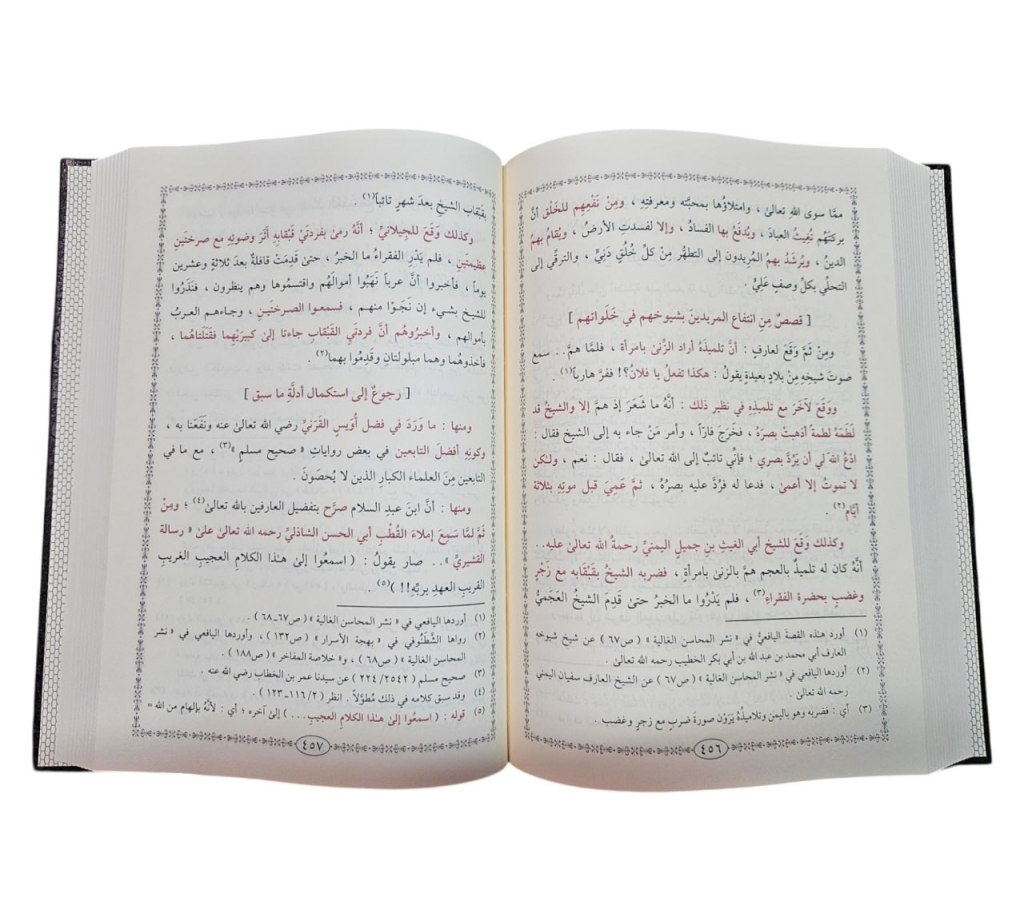 ممَّا سوى الله تعالىٰ ، وامتلاؤُها بمحبَّته ومعرفتهِ ، ومِنْ نَفْعِهِم للخَلْق أنَّ
بركتَهُم تُغيثُ العبادَ ، ويُدفَعُ بها الفسادُ ، وإلا لفسدتِ الأرضُ ، ويُقامُ بهمُ
الدينُ ، ويُرشَدُ بهمُ المُريدون إلى التطهُّرِ مِنْ كلِّ خُلُقٍ دَنِيٍّ ، والترقِّي إلى
التحلِّي بكلِّ وصفٍ عَلِيٍّ .
[ قصصٌ مِن انتفاع المريدينَ بشيوخهم في خَلَواتهم ]
ومِنْ ثَمَّ وَقَعَ لعارفٍ : أنَّ تلميذَهُ أراد الزِّنىٰ بامرأة ، فلمَّا همَّ.. سمع
صوتَ شيخِهِ مِنْ بلادٍ بعيدةٍ يقولُ : هكذا تفعلُ يا فلانُ؟! ففرَّ هارباً(١) .
ووَقَعَ لآخَرَ مع تلميذِهِ في نظير ذلك : أنَّهُ ما شَعَرَ إذ همَّ إلا والشيخُ قد
لَطَمَهُ لطمةً أذهبتْ بصرَهُ ، فخَرَجَ فارّاً ، وأمر مَنْ جاء به إلى الشيخ فقال :
ادعُ اللهَ لي أن يَرُدَّ بصري ؛ فإنِّي تائبٌ إلى الله تعالىٰ ، فقال : نعم ، ولكن
لا تموتُ إلا أعمىٰ ، فدعا له فرُدَّ عليه بصرُهُ ، ثمَّ عَمِيَ قبل موتِهِ بثلاثة
أيَّامٍ(٢) .
وكذلك وَقَعَ للشيخ أبي الغيث بنِ جميلٍ اليمنيِّ رحمةُ الله تعالىٰ عليه.
أنَّهُ كان له تلميذٌ بالعجم همَّ بالزنىٰ بامرأةٍ ، فضربه الشيخُ بقَبْقَابه مع زَجْرٍ
وغضبٍ بحضرة الفقراءِ(٣) ، فلم يَدْرُوا ما الخبرُ حتىٰ قَدِمَ الشيخُ العَجَميُّ
(١) أورد هذه القصة اليافعيُّ في « نشر المحاسن الغالية » ( ص٦٧ ) عن شيخ شيوخه
العارف أبي محمد بن عبد الله بن أبي بكر الخطيب رحمه الله تعالىٰ .
(٢) أوردها اليافعي في « نشر المحاسن الغالية » ( ص٦٧ ) عن الشيخ العارف سفيان اليمني
رحمه الله تعالىٰ .
(٣) أي : فضربه وهو باليمن وتلاميذُهُ يَرَوْن صورةَ ضربٍ مع زجرٍ وغضب .
٤٥٦
بقَبْقاب الشيخِ بعدَ شهرٍ تائباً(١) .
وكذلك وَقَعَ للجِيلانيِّ ؛ أنَّهُ رمىٰ بفردتَيْ قَبْقابِهِ أثَرَ وضوئِهِ مع صرختَينِ
عظيمتَينِ ، فلم يَدْرِ الفقراءُ ما الخبرُ ، حتىٰ قدِمَتْ قافلةٌ بعدَ ثلاثةٍ وعشرين
يوماً ، فأخبروا أنَّ عرباً نَهَبُوا أموالهُم واقتسمُوها وهم ينظرون ، فنَذَرُوا
للشيخِ بشيءٍ إن نَجَوْا منهم ، فسمعوا الصرختَينِ ، وجاءهم العربُ
بأموالهم ، وأخبرُوهُم أنَّ فردتَيِ القَبْقابِ جاءتا إلىٰ كبيرَيْهِما فقَتَلَتاهُما ،
فأخذوهُما وهما مبلولتانِ وقَدِمُوا بهما(٢) .
[ رجوعٌ إلى استكمال أدلَّةِ ما سبق ]
ومنها : ما وَرَدَ في فضل أُوَيسٍ القَرَنيِّ رضي الله تعالىٰ عنه ونَفَعَنا به ،
وكونِهِ أفضلَ التابعين في بعض رواياتِ « صحيح مسلم »(٣) ، مع ما في
التابعين مِنَ العلماء الكبارِ الذين لا يُحصَونَ .
ومنها : أنَّ ابنَ عبدِ السلام صرَّح بتفضيل العارفين بالله تعالىٰ(٤) ؛ ومِنْ
ثَمَّ لمَّا سَمِعَ إملاءَ القُطْبِ أبي الحسن الشاذليِّ رحمه الله تعالىٰ علىٰ « رسالة
القشيريِّ ».. صار يقولُ : ( اسمعُوا إلىٰ هـٰذا الكلامِ العجيبِ الغريبِ
القريبِ العهدِ بربِّه!! )(٥) .
(١) أوردها اليافعي في « نشر المحاسن الغالية » ( ص٦٧_٦٨ ) .
(٢) رواها الشَّطَّنُوفي في « بهجة الأسرار » ( ص١٣٢ ) ، وأوردها اليافعي في « نشر
المحاسن الغالية » ( ص٦٨ ) ، و« خلاصة المفاخر » ( ص١٨٨ ) .
(٣) صحيح مسلم ( ٢٥٤٢/ ٢٢٤ ) عن سيدنا عمر بن الخطاب رضي الله عنه .
(٤) وقد سبق كلامه في ذلك مُطوَّلاً . انظر ( ٢/ ١١٦_١٢٣ ) .
(٥) قوله : ( اسمعُوا إلىٰ هـٰذا الكلامِ العجيبِ... ) إلىٰ آخره ؛ أي : لأنَّهُ بإلهام من الله =
٤٥٧